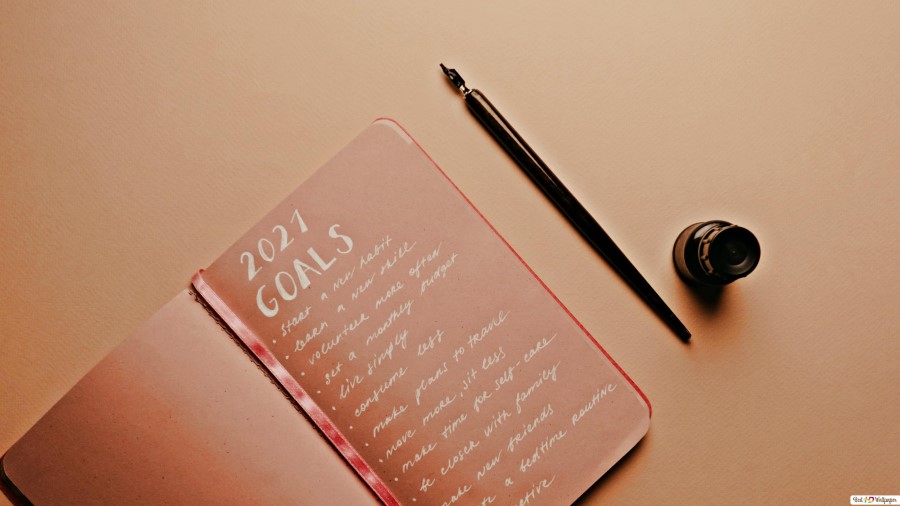 2021
GOALS
• start a new habit
• learn a new skill
• volunteer more often
• set a monthly budget
• live simply
• consume less
• make plans to travel
• move more, sit less
• make time for self-care
• be closer with family
make new friends
a bedtime routine
HD Wallpaper